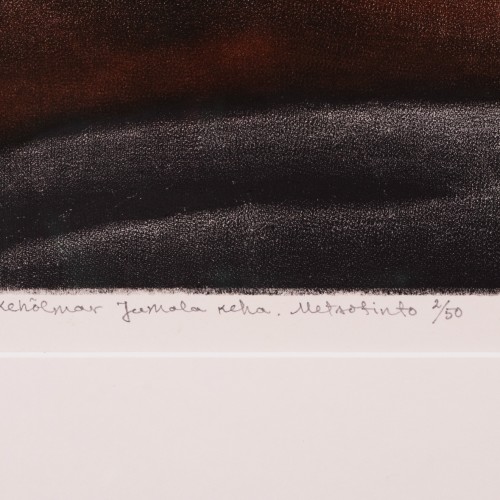 kehõlmar Jumala keha. Metsotinto 2/50